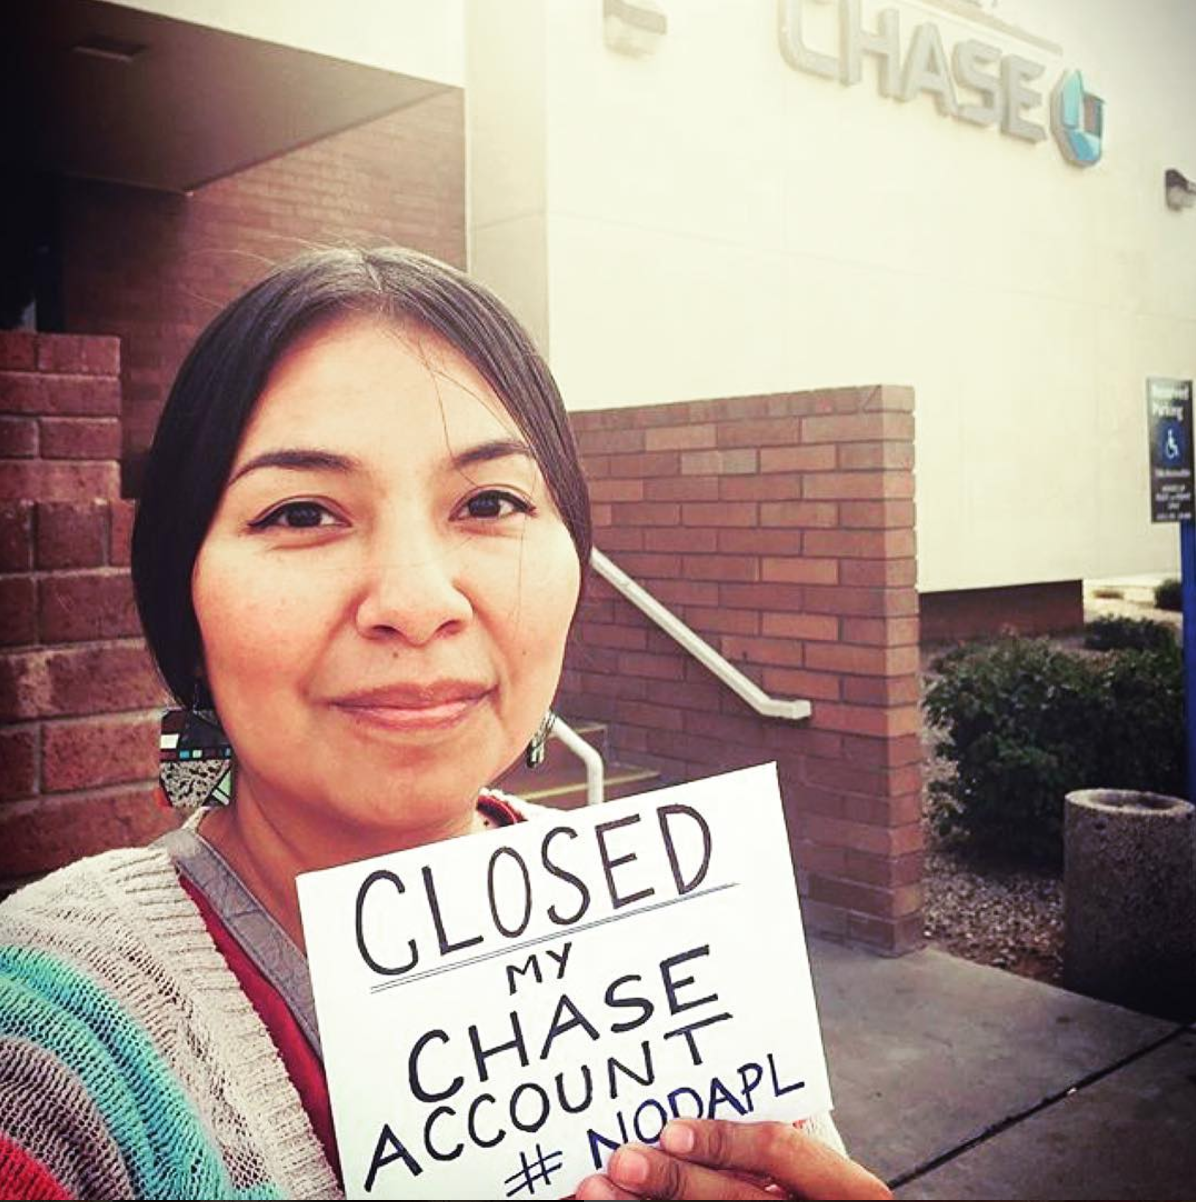 CHASE
Reserved
Parking
CLOSED
MY
CHASE
ACCOUNT
# NODAPL